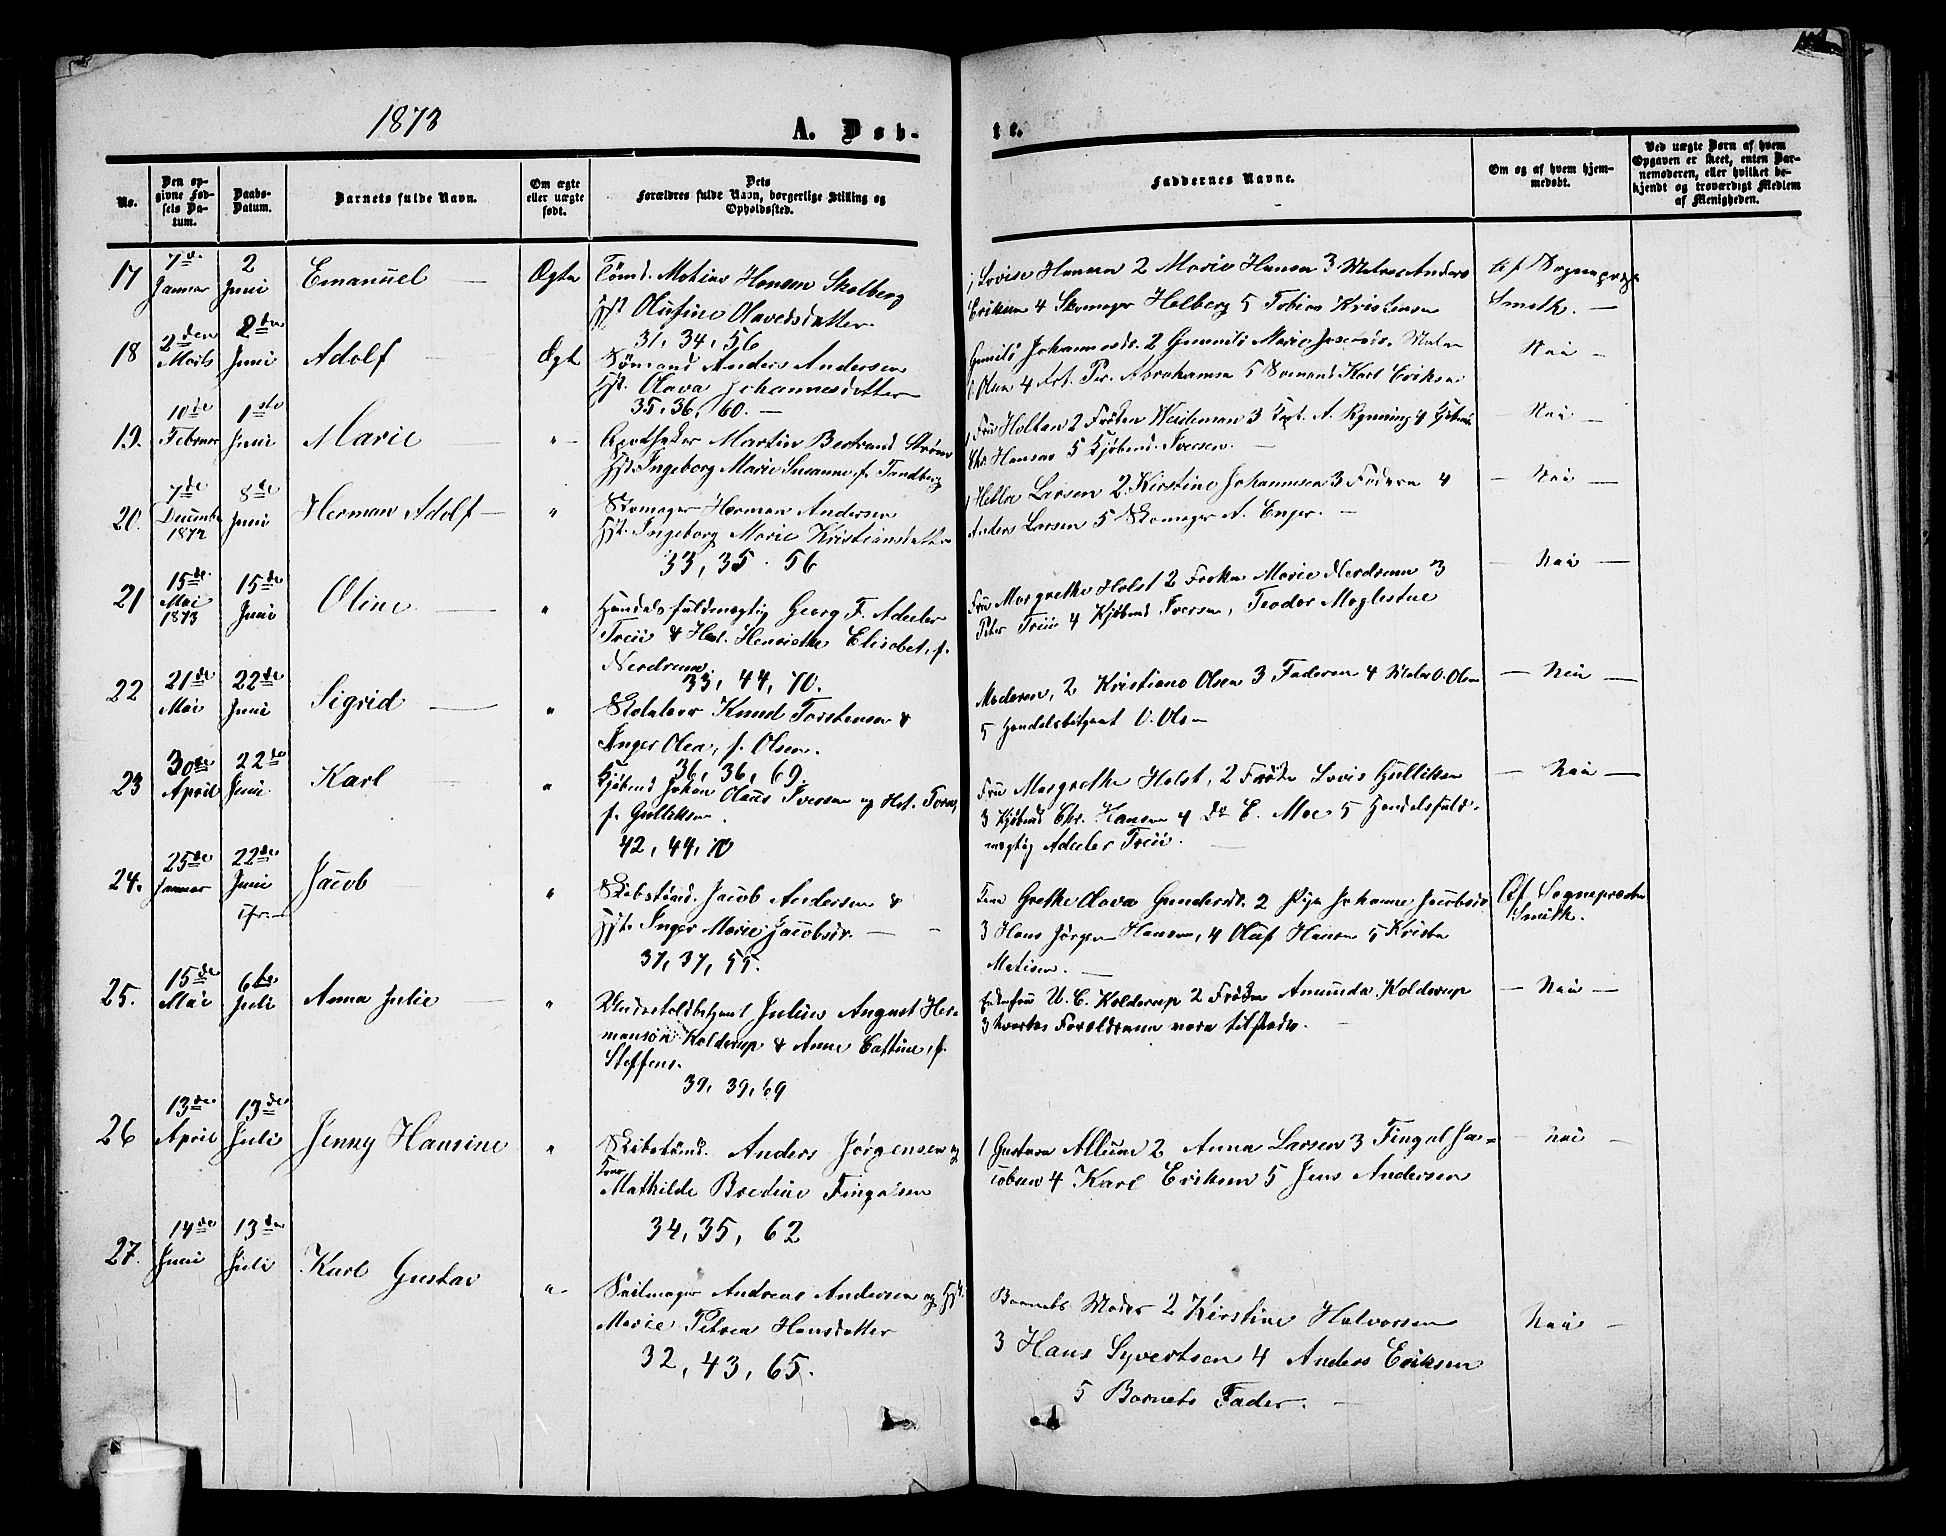 1873
A. Døb-
te.
No.
Den op-
givne Fød-
sels Da-
tum.
Daabs-
Datum.
Barnets fulde Navn.
Om ægte
eller uægte
født.
Dets
Forældres fulde Navn, borgerlige Stilling og
Opholdssted.
Faddernes Navne.
Om og af hvem hjem-
medøbt.
Ved uægte Børn af hvem
Opgaven er skeet, enten Bar-
nemoderen, eller hvilket be-
kjendt og troværdigt Medlem
af Menigheden.
17
7de
Januar
2
Juni
Emanuel
Ægte
Tømd. Matias Hansen Skolberg
Hst. Olufine Olavesdatter
31, 34, 56
1 Lovise Hansen 2 Marie Hansen 3 Matros Anders
Eriksen 4 Skomager Holberg 5 Tobias Kristensen
af Sognepræst
Smith. —
18
2den
Marts
8den
Juni
Adolf
Ægte
Sømand Anders Andersen
Hst. Olava Johannesdatter
35, 36, 60. —
Gunild Johannesdr. 2 Gunnild Marie
Olsen 4 Arb. Per. Abrahamsen 5 Sømand Karl Eriksen
Nei —
19.
10de
Februar
1ste
Juni
Marie
" —
Apotheker Martin Bertrand Strøm
Hst. Ingeborg Marie Susanne, f. Tandberg
1 Fru Holtan 2 Frøken Weideman 3 Kapt. A. Rynning 4 Kjøbmd.
Chr. Hansen 5 Kjøbmd. Iversen. —
— Nei —
20.
7de
Decembr
1872
8de
Juni
Herman Adolf —
"
Skomager Herman Andersen
Hst. Ingeborg Marie Kristiansdatter
33, 35. 56
1 Helle Larsen 2. Kirstine Johannesen 3 Faderen 4
Anders Larsen 5 Skomager A. Enger. —
— Nei —
21
15de
Mai
1873
15de
Juni
Oline
"
Handelsfuldmægtig Georg F. Adeler
Treii & Hst. Henriette Elisabet, f.
Nerdrum.
33, 44, 70.
Fru Margrethe Holst 2 Frøken Marie Nerdrum 3
Peter Treii 4 Kjøbmd Iversen, Teodor Meglestue
— Nei —
22
21de
Mai
22de
Juni
Sigrid
"
Skolelærer Knud Torstensen &
Inger Olea, f. Olsen.
36, 36, 69.
Moderen, 2 Kristiane Olsen 3 Faderen 4 Maler O. Olsen
5 Handelsbetjent O. Olsen
— Nei —
23
30te
April
22de
Juni
Karl
"
Kjøbmd Johan Olaus Iversen og Hst.
f. Gulliksen.
42, 44, 70
Fru Margrethe Holst, 2 Frøken Lovis Gulliksen
3 Kjøbmd Chr. Hansen 4 Dr. E. Moe 5 Handelsfuld-
mægtig Adeler Treii.
— Nei —
24.
25de
Januar
22de
Juni
Jacob
"
Skibstømd. Jacob Andersen &
Hst. Inger Marie Jacobsdr. —
37, 37, 55.
Kone Grethe Olava Gundersdr. 2 Pige Johanne Jacobsdr
3 Hans Jørgen Hansen, 4 Oluf Hansen 5
Matisen. —
Af Sognepræsten
Smith.
25.
15de
Mai
6te
Juli
Anna Julie
"
Undertoldbetjent Julius August Her-
manson Kolderup & Anne Cattrine, f.
Steffens.
39, 39, 69
Enkefru U. C. Kolderup 2 Frøken Amunda Kolderup
3 Forældrene vare tilstede.
— Nei —
26
13de
April
13de
Juli
Jenny Hansine
"
Skibstømd. Anders Jørgensen og
Kone
Mathilde Bredine Fingalsen
34, 35, 62
1 Gustava Allum 2 Anna Larsen 3 Fingal Ja-
cobsen 4 Karl Eriksen 5 Jens Andersen
— Nei —
27.
14de
Juni
13de
Juli
Karl Gustav
" —
Seilmager Andreas Andersen og Hst.
Marie Petrea Hansdatter
32, 43, 65.
Barnets Moder 2 Kirstine Halvorsen
3 Hans Syvertsen 4 Anders Eriksen
5 Barnets Fader. —
Nei —